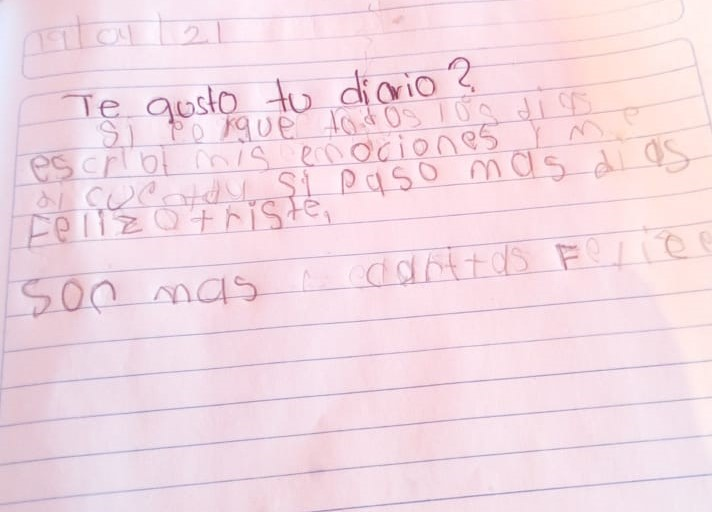 19/04/21
Te gusto tu diario?
Si porque todos los dias
escribi mis emociones y me
di cuenta si paso mas dias
Feliz o triste,
Son mas caritas Felice